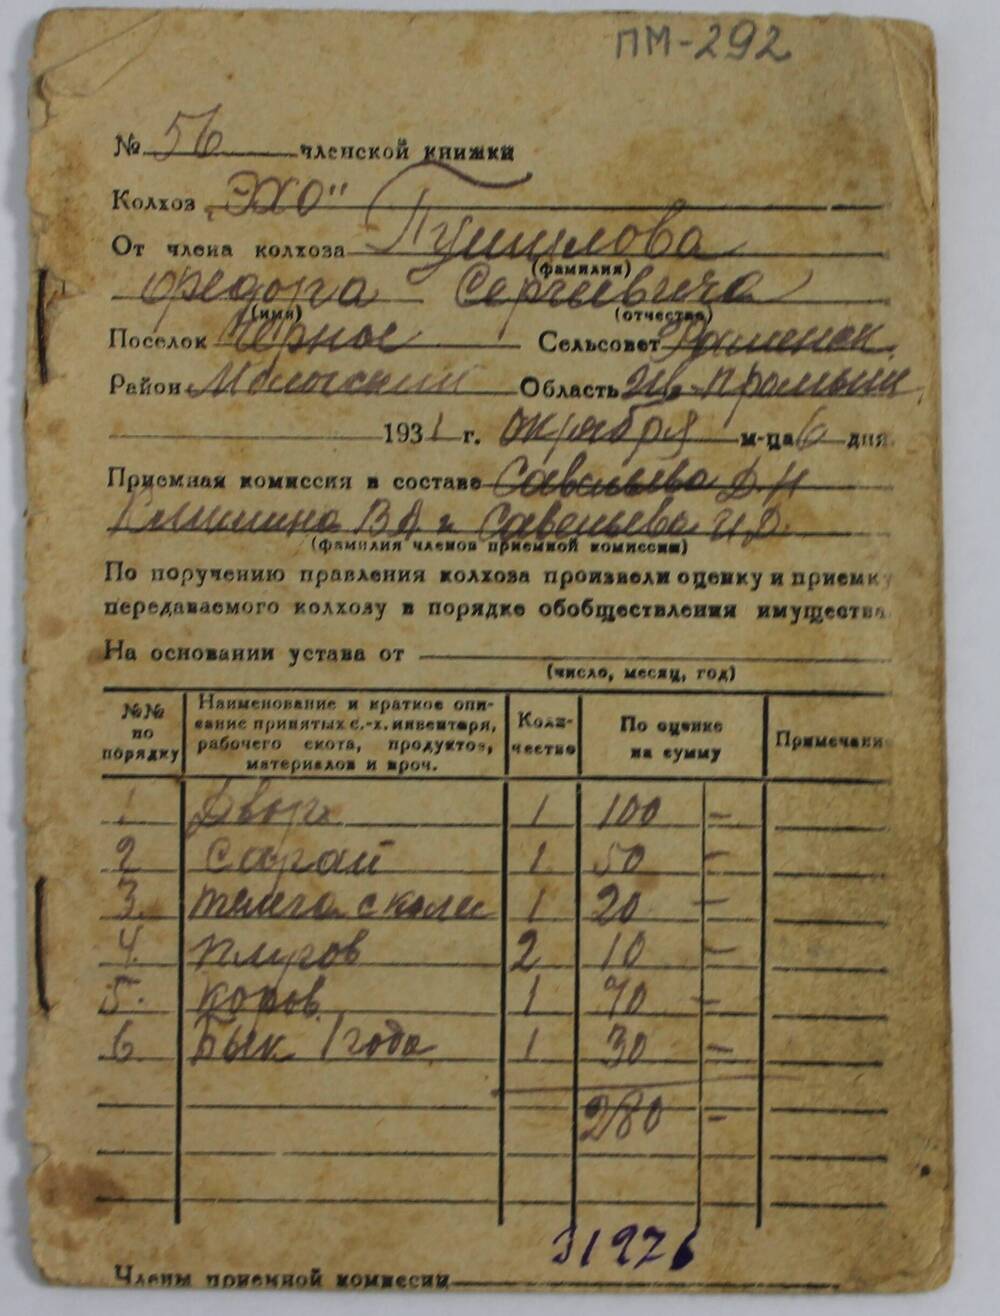 ПМ-292
№ 56 членской книжки
Колхоз „ЭХО"
От члена колхоза
(фамилия)
Федора Сергеевича
(имя) (отчество)
Поселок Черное Сельсовет
Район Мологский Область Ив. Промыш.
1931 г. Октября м-ца 6 дня
Приемная комиссия в составе Савельева Д.Н
В А и Савельева И.Д.
(фамилия членов приемной комиссии)
По поручению правления колхоза произвели оценку и приемку
передаваемого колхозу в порядке обобществления имущества
На основании устава от
(число, месяц, год)
№№ по порядку Наименование и краткое опи-сание принятых с.-х. инвентаря, рабочего скота, продуктов, материалов и проч. Коли-чество По оценке на сумму Примечание
1. Двор 1 100 -
2 Сарай 1 50 -
3. телега с колес 1 20 -
4. плугов 2 10 -
5. коров 1 70 -
6 Бык 1 года 1 30 -
280 -
31976
Члены приемной комиссии